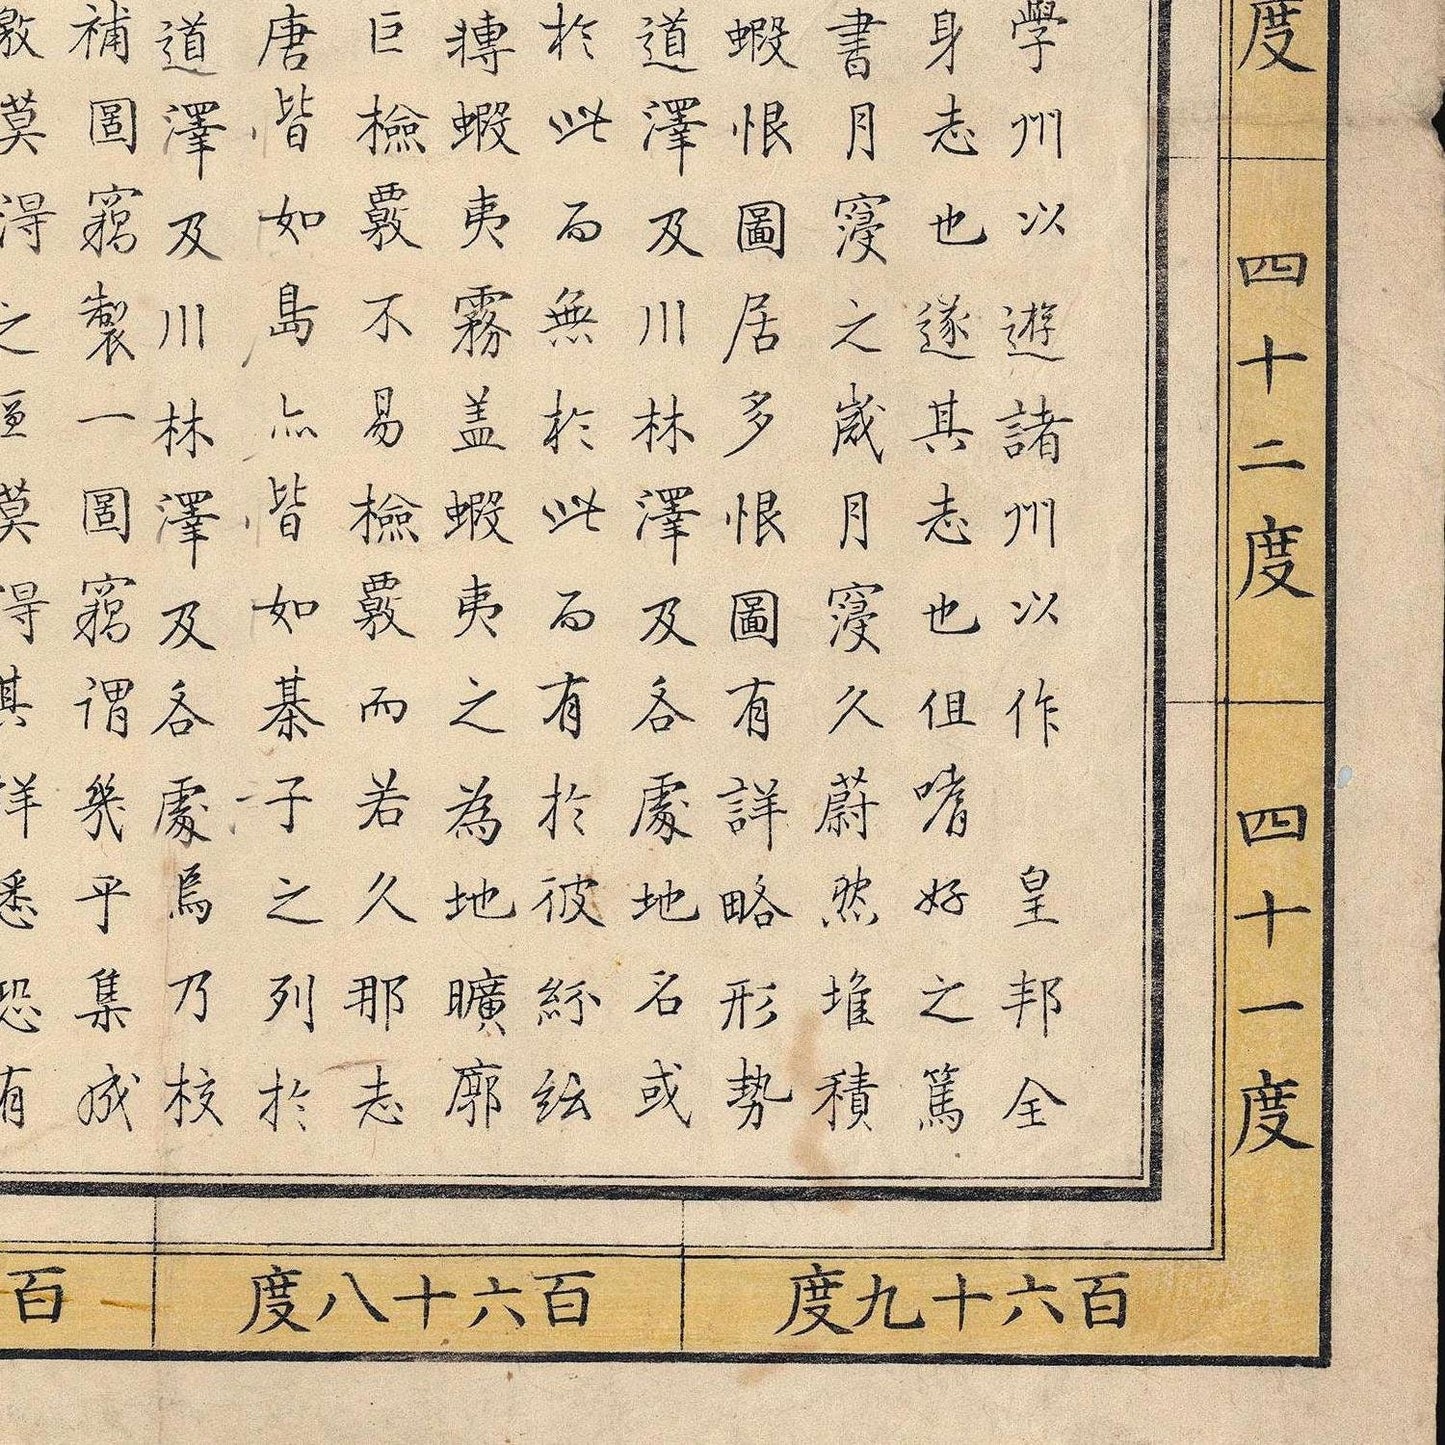 度
四十二度
四十一度
學州以遊諸州以作　皇邦全
身志也遂其志也但嗜好之篤
書月寖之歲月寖久蔚然堆積
蝦恨圖居多恨圖有詳略形勢
道澤及川林澤及各處地名或
於此而無於此而有於彼紛紜
摶蝦夷霧盖蝦夷之為地曠廓
巨檢覈不易檢覈而若久那志
唐皆如島亦皆如棊子之列於
道澤及川林澤及各處焉乃校
補圖竊製一圖竊謂幾乎集成
莫得之 莫得其詳悉恐有
百六十九度
百六十八度
百